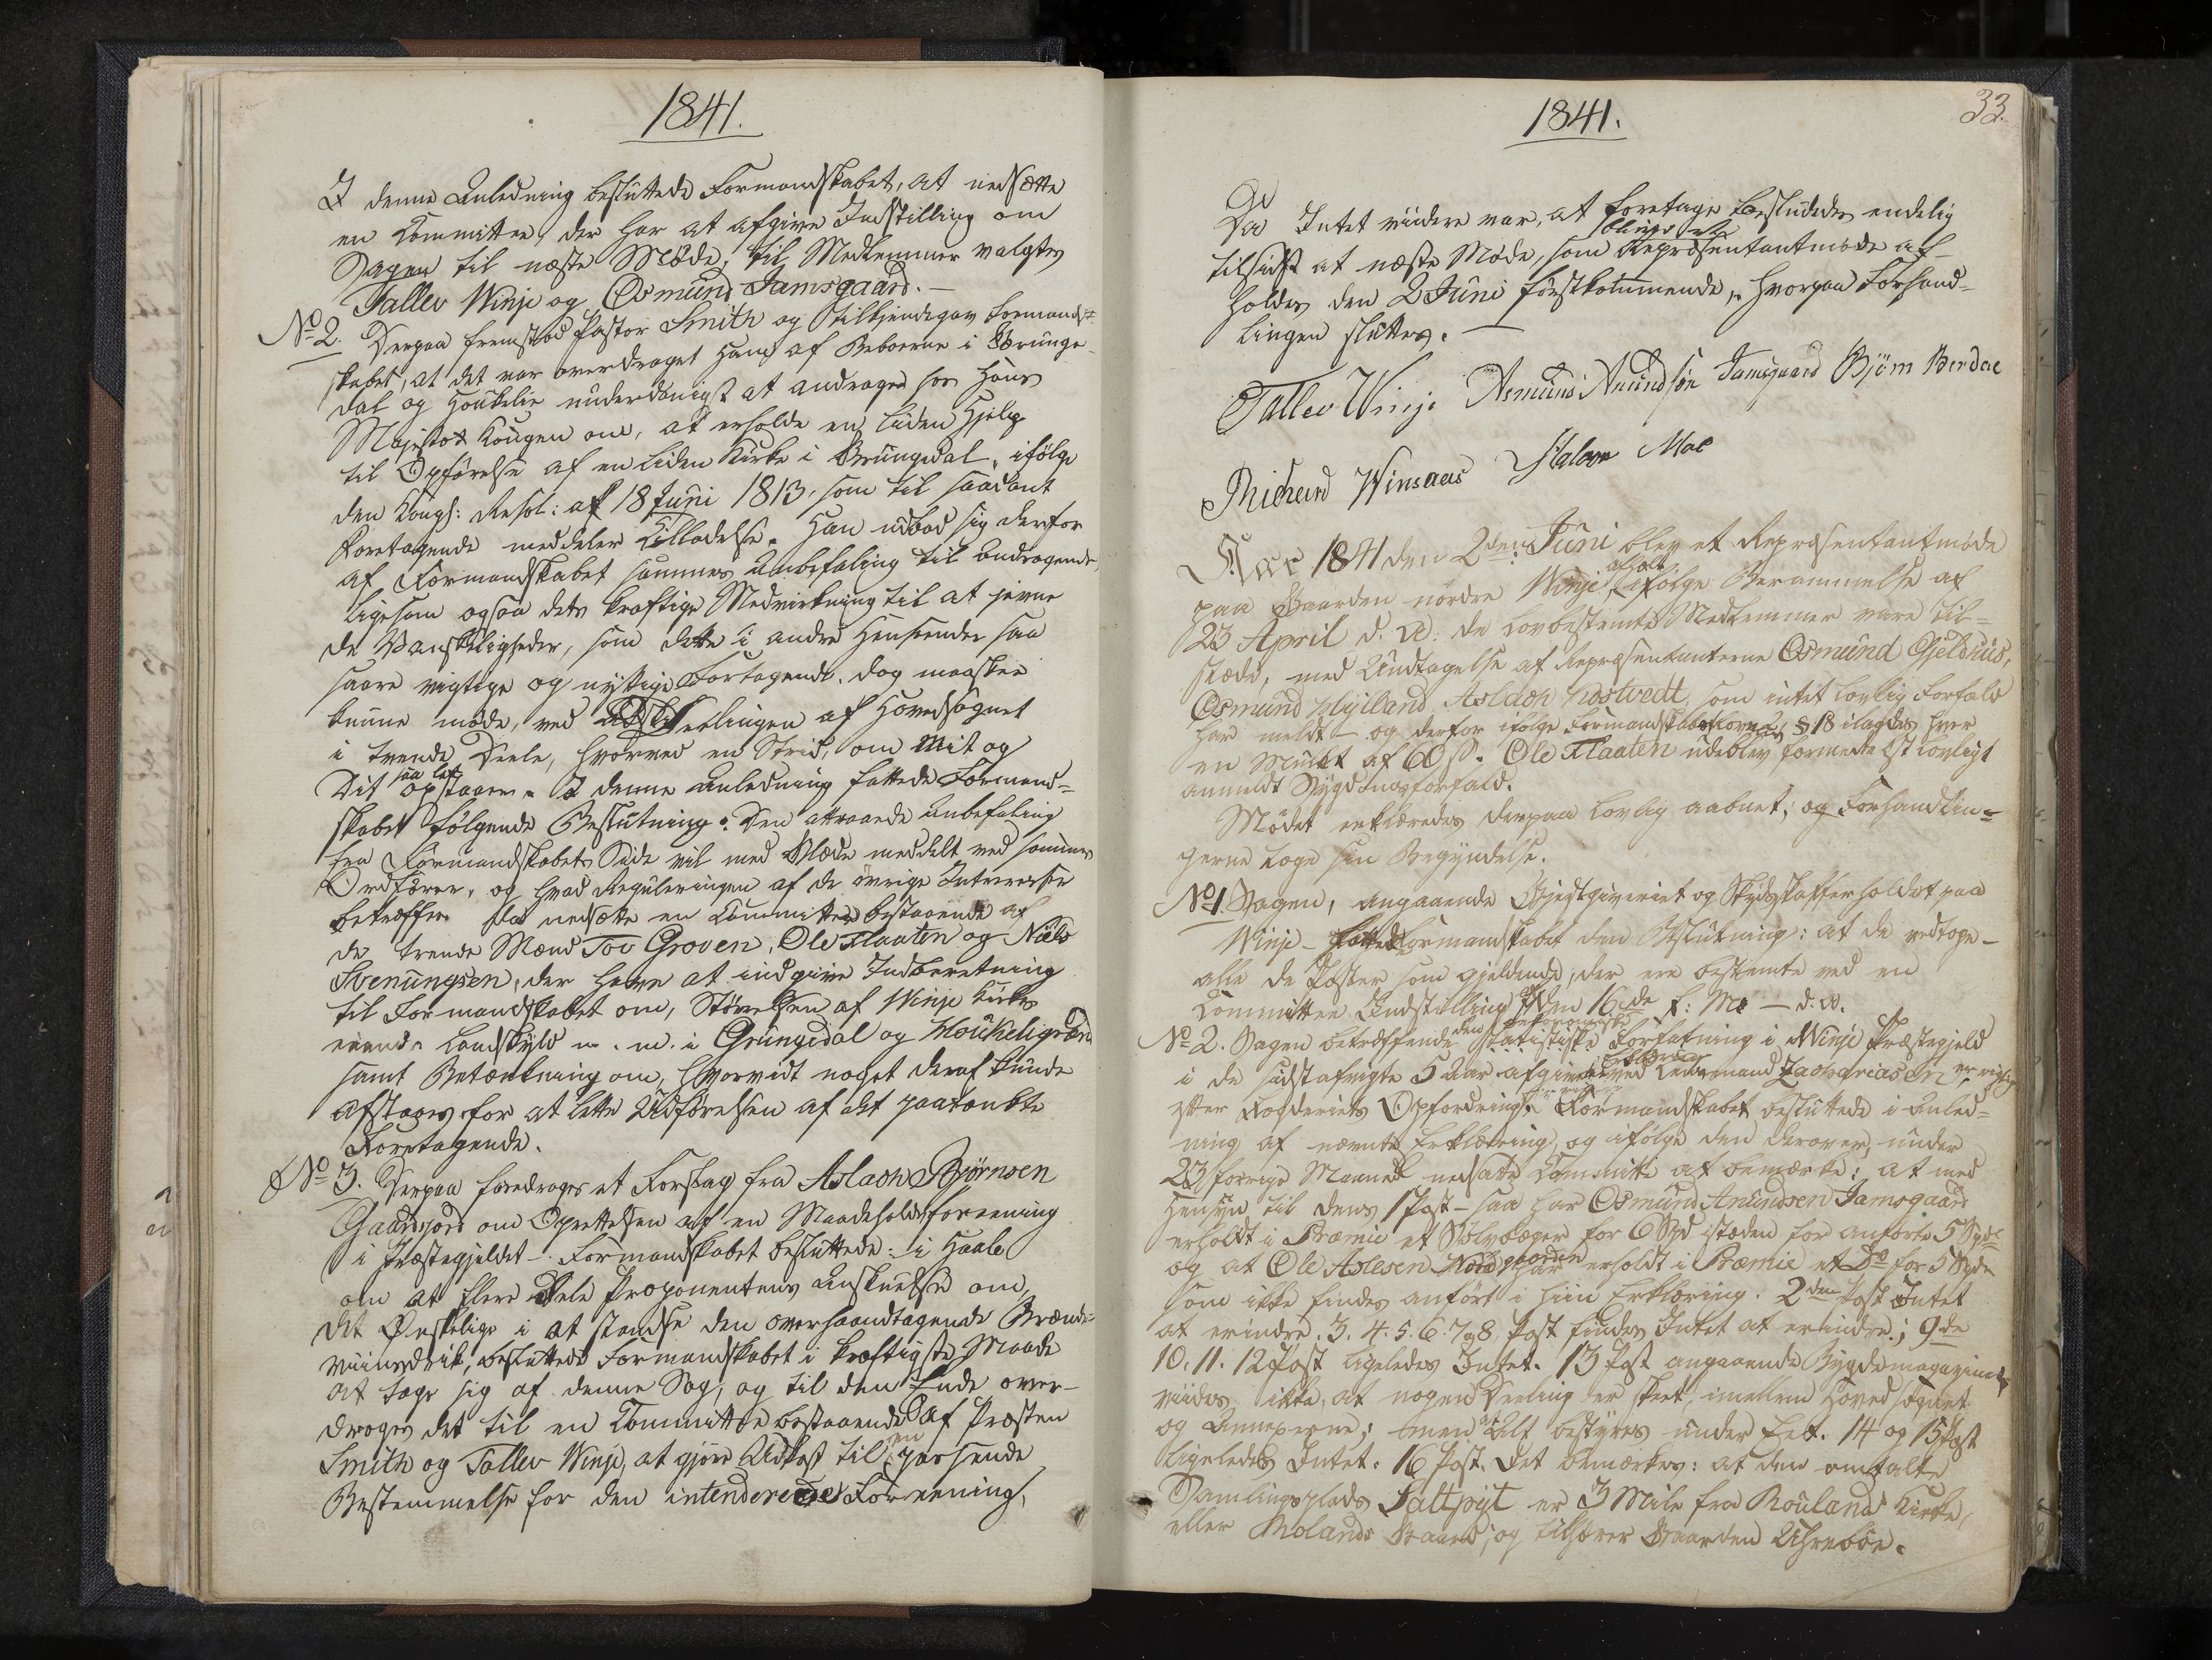 1841.
I denne Anledning besluttede Formandskabet, at nedsætte
en Committee, der har at afgive Indstilling om
Sagen til næste Møde, til Medlemmer valgtes
Tallev Winje og Osmund Jamsgaard. —
No 2. Derpaa fremstod Pastor Smith og tilkjendegav Formand-
skabet, at det var overdraget ham af Beboerne i Grunge-
dal og Houkelie underdanigst at andrage hos Hans
Majestæt Kongen om, at erholde en liden Hjelp
til Opførelse af en liden Kirke i Grungedal, ifølge
den Kongl: Resol: af 18 Juni 1813, som til saadant
Foretagende meddeler Tilladelse. Han udbad sig derfor
af Formandskabet sammes Anbefaling til Andragende,
ligesom ogsaa dets kraftige Medvirkning til at jevne
de Vanskeligheder, som dette i andre Henseender saa
saare vigtige og nyttige Foretagende, dog maaskee
kunne møde, ved Adskillelsen af Hovedsognet
i tvende Deele, hvorved en Strid, om Mit og
Dit saa let opstaaer. I denne Anledning fattede Formand-
skabet følgende Beslutning: Den attraaede Anbefaling
fra Formandskabets Side vil med Glæde meddelt ved sammes
Ordfører, og hvad Reguleringen af de øvrige Interesser
betræffer da nedsætte en Committee bestaaende af
de trende Mænd Tov Groven, Ole Flaaten og Niels
Svenungsen, der have at indgive Indberetning
til Formandskabet om, Størrelsen af Winje Kirkes
eiende Landskyld m. m. i Grungedal og Houkeligrænd
samt Betænkning om, hvorvidt noget deraf kunde
afstaaes for at lette Udførelsen af det paatænkte
Foretagende.
No 3. Derpaa foredroges et Forslag fra Aslach Bjørnsen
Gaardsjord om Oprettelsen af en Maadeholdsforeening
i Præstegjeldet — Formandskabet besluttede: i Haab
om at flere dele Proponentens Anskuelse om,
det Ønskelige i at standse den overhaandtagende Brænde-
viinsdrik, besluttede Formandskabet i kraftigste Maade
at tage sig af denne Sag, og til den Ende over-
droges det til en Committee bestaaende af Præsten
Smith og Tallev Winje, at gjøre Udkast til en passende
Bestemmelse for den intenderede Foreening,
1841.
33.
Da Intet viidere var, at foretage besluttedes endelig
tilsidst at næste Møde, som Repræsentantmøde af-
holdes den 2 Juni førstkommende, hvorpaa Forhand-
lingen sluttes. —
Tallev Winje Asmund Amundsøn Jamsgaard Bjørn Berdal
Richard Winsaas Halvor Moe
Aar 1841 den 2den Juni blev et Repræsentantmøde
paa Gaarden nordre Winje afholdt ifølge Berammelse af
23 April d. A. de Lovbestemte Medlemmer vare til-
stæde, med Undtagelse af Repræsentanterne Osmund Gjeldhus,
Osmund Hylland, Aslach Kostvedt som intet lovlig Forfald
har meldt — og derfor ifølge Formandskabsloven § 18 ilagdes hver
en Mulkt af 60 ß. Ole Flaaten udeblev formedelst lovligt
anmeldt Sygdomsforfald.
Mødet erklæredes derpaa lovlig aabnet, og Forhandlin-
gerne toge sin Begyndelse.
No 1. Sagen, angaaende Gjestgiveriet og Skydsskafferholdet paa
Winje — fattede Formandskabet den Beslutning: at de vedtoge —
alle de Poster som gjeldende, der ere bestemte ved en
Committee Indstilling af den 16de f: M: — d. A.
No 2. Sagen betræffende den statistiske Forfatning i Winje Præstegjeld
i de sidstafvigte 5 Aar afgiven ved Lensmand Zachariasen
efter Fogderiets Opfordring. Formandskabet besluttede i Anled-
ning af nævnte Erklæring, og ifølge den derover, under
23 forrige Maaned nedsatte Committee at bemærke: at med
Hensyn til dens 1 Post — saa har Osmund Amundsen Jamsgaard
erholdt i Præmie et Sølvbæger for 6 Spd istæden for anførte 5 Spd
og at Ole Aslesen Nordgaarden har erholdt i Præmie et Do for 5 Spd
som ikke findes anført i hiin Erklæring. 2den Post Intet
at erindre. 3. 4. 5. 6. 7 og 8. Post findes Intet at erindre; 9de
10. 11. 12 Post ligeledes Intet. 13 Post angaaende Bygdemagazinet
viides ikke, at nogen Deeling er skeet, imellem Hovedsognet
og Annexerne; men at Alt bestyres under Eet. 14 og 15 Post
ligeledes Intet. 16 Post. Det bemærkes: at den omtalte
Samlingsplads Saltpyt er 3 Mile fra Rouland Kirke,
eller Molands Gaard, og tilhører Gaarden Uhrebøe.